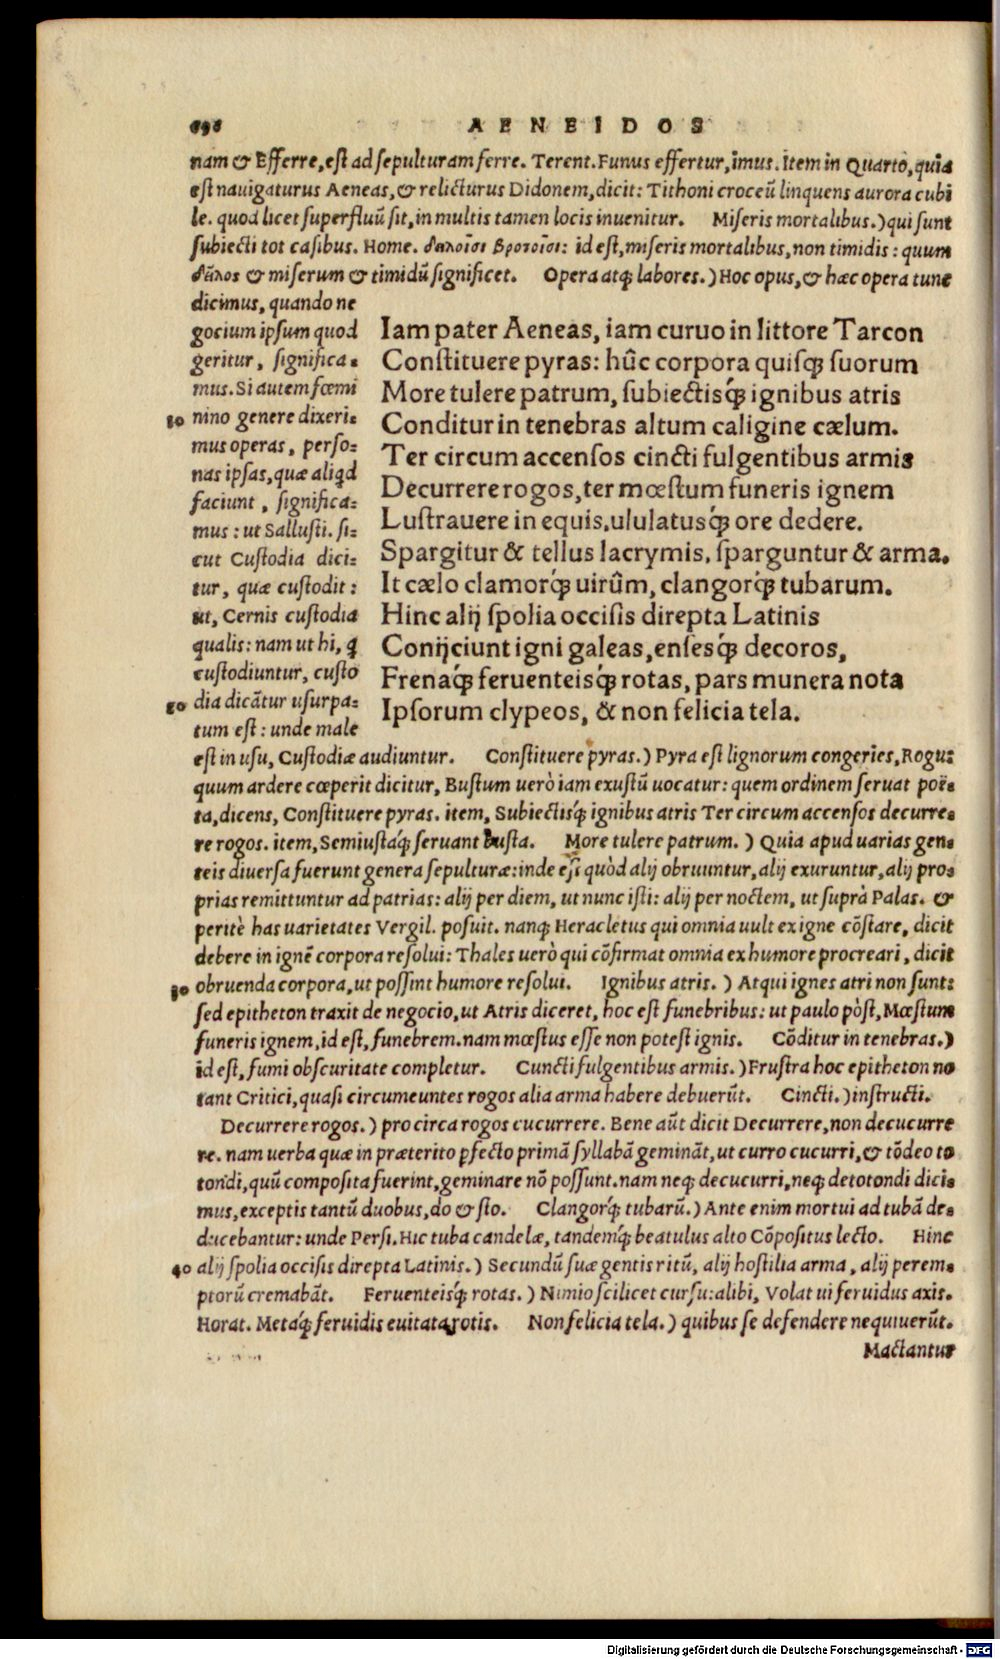 698 AENEIDOS
nam & Efferre, est ad sepulturam ferre. Terent. Funus effertur, imus. Item in Quarto, quia
est nauigaturus Aeneas, & relicturus Didonem, dicit: Tithoni croceū linquens aurora cubi
le. quod licet superfluū sit, in multis tamen locis inuenitur. Miseris mortalibus.) qui sunt
subiecti tot casibus. Home. δειλοῖσι βροτοῖσι: id est, miseris mortalibus, non timidis: quum
δειλος & miserum & timidū significet. Opera atq; labores.) Hoc opus, & hæc opera tunc
dicimus, quando ne
gocium ipsum quod
geritur, significa-
mus. Si autem fœmi
80 nino genere dixeri-
mus operas, perso-
nas ipsas, quæ aliqd
faciunt, significa-
mus: ut Sallusti. si-
cut Custodia dici-
tur, quæ custodit:
ut, Cernis custodia
qualis: nam ut hi, q
custodiuntur, custo
80 dia dicātur usurpa-
tum est: unde male
Iam pater Aeneas, iam curuo in littore Tarcon
Constituere pyras: hûc corpora quisq; suorum
More tulere patrum, subiectisq́; ignibus atris
Conditur in tenebras altum caligine cælum.
Ter circum accensos cincti fulgentibus armis
Decurrere rogos, ter mœstum funeris ignem
Lustrauere in equis, ululatusq́; ore dedere.
Spargitur & tellus lacrymis, sparguntur & arma.
It cælo clamorq́; uirûm, clangorq́; tubarum.
Hinc alij spolia occisis direpta Latinis
Conijciunt igni galeas, ensesq́; decoros,
Frenaq́; feruenteisq́; rotas, pars munera nota
Ipsorum clypeos, & non felicia tela.
est in usu, Custodiæ audiuntur. Constituere pyras.) Pyra est lignorum congeries, Rogus
quum ardere cœperit dicitur, Bustum uerò iam exustū uocatur: quem ordinem seruat poë-
ta, dicens, Constituere pyras. item, Subiectisq́; ignibus atris Ter circum accensos decurre-
re rogos. item, Semiustaq́; seruant busta. More tulere patrum.) Quia apud uarias gen-
teis diuersa fuerunt genera sepulturæ: inde est quòd alij obruuntur, alij exuruntur, alij pro-
prias remittuntur ad patrias: alij per diem, ut nunc isti: alij per noctem, ut suprà Palas. &
peritè has uarietates Vergil. posuit. nanq; Heracletus qui omnia uult ex igne cōstare, dicit
debere in ignē corpora resolui: Thales uerò qui cōfirmat omnia ex humore procreari, dicit
30 obruenda corpora, ut possint humore resolui. Ignibus atris.) Atqui ignes atri non sunt:
sed epitheton traxit de negocio, ut Atris diceret, hoc est funebribus: ut paulo pòst, Mœstum
funeris ignem, id est, funebrem. nam mœstus esse non potest ignis. Cōditur in tenebras.)
id est, fumi obscuritate completur. Cuncti fulgentibus armis.) Frustra hoc epitheton no
tant Critici, quasi circumeuntes rogos alia arma habere debuerūt. Cincti.) instructi.
Decurrere rogos.) pro circa rogos cucurrere. Bene aūt dicit Decurrere, non decucurre
re. nam uerba quæ in præterito pfecto primā syllabā gemināt, ut curro cucurri, & tōdeo to
tondi, quū composita fuerint, geminare nō possunt. nam neq; decucurri, neq; detotondi dici-
mus, exceptis tantū duobus, do & sto. Clangorq́; tubarū.) Ante enim mortui ad tubā de-
ducebantur: unde Persi. Hic tuba candelæ, tandemq́; beatulus alto Cōpositus lecto. Hinc
40 alij spolia occisis direpta Latinis.) Secundū suæ gentis ritū, alij hostilia arma, alij perem-
ptorū cremabāt. Feruenteisq́; rotas.) Nimio scilicet cursu: alibi, Volat ui feruidus axis.
Horat. Metaq́; feruidis euitata rotis. Non felicia tela.) quibus se defendere nequiuerūt.
Mactantur
Digitalisierung gefördert durch die Deutsche Forschungsgemeinschaft - DFG